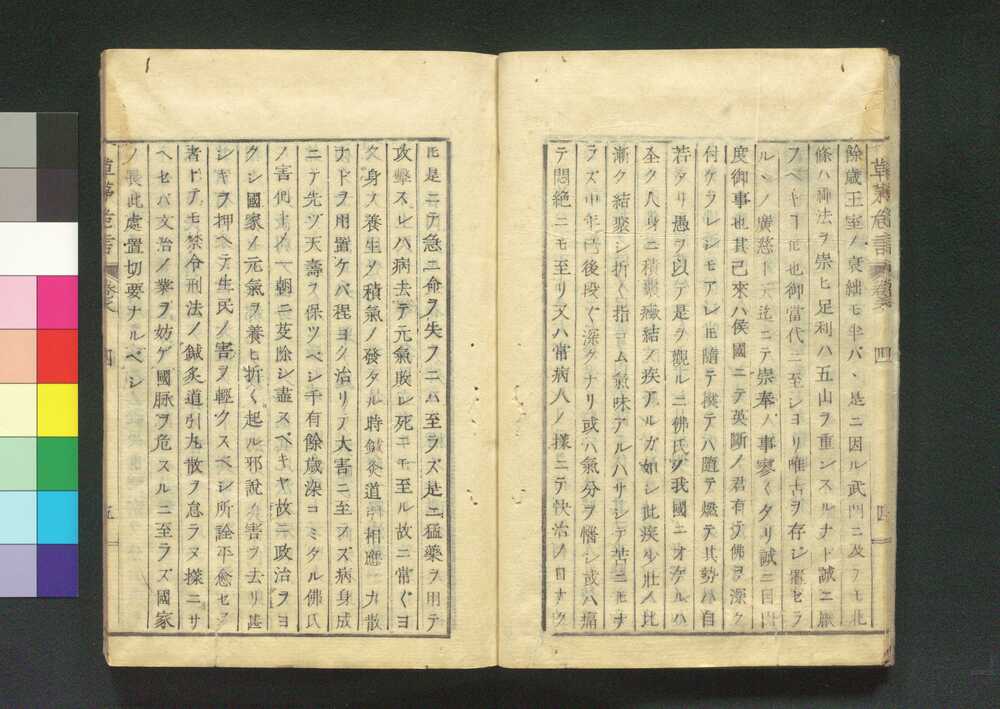 餘歳王室ノ衰絀モ半バヽ是ニ因ル武門ニ及テモ北
條ハ禪法ヲ崇ヒ足利ハ五山ヲ重ンスルナド誠ニ厭
フベキヿ𪜈也御當代ニ至シヨリ唯古ヲ存シ置セラ
ルヽノ廣慈ト天迄ニテ崇奉ノ事寥〱タリ誠ニ目出
度御事也其己來ハ侯國ニテ英斷ノ君有テ佛ヲ深ク
付ケラレシモアレ𪜈隨テ撲テハ隨テ燃テ其勢ハ自
若タリ愚ヲ以テ是ヲ觀ルニ佛氏ノ我國ニオケルハ
全ク人身ニ積聚癥結ノ疾アルガ如シ此疾少壯ノ比
漸ク結聚シ折〱指コム氣味アルハサシテ苦ニモナ
ラズ中年 後段〱深クナリ或ハ氣分ヲ惱シ或ハ痛
テ悶絶ニモ至リ又ハ常病人ノ樣ニテ快治ノ日ナク
𪜈是ニテ急ニ命ヲ失フニハ至ラズ是ニ猛藥ヲ用テ
攻擊スレハ病去テ元氣敗レ死ニモ至ル故ニ常〱ヨ
ク身ヲ養生シ積氣ノ發タル時鍼灸道引相應ニ丸散
ナドヲ用置ケバ程ヨク治リテ大害ニ至ラズ病身成
ニテ先ヅ天壽ヲ保ツベシ千有餘歳染コミタル佛氏
ノ害何 一朝ニ芟除シ盡スベキヤ故ニ政治ヲヨ
クシ國家ノ元氣ヲ養ヒ折〱起ル邪說ノ害ヲ去リ甚
シキヲ押ヘテ生民ノ害ヲ輕クスベシ所詮平愈セヌ
者ト 禁令刑法ノ鍼灸道引丸散ヲ怠ラヌ樣ニサ
ヘセバ文治ノ業ヲ妨ゲ國脈ヲ危スルニ至ラズ國家
ノ 此處置切要ナルベシ
草茅危言
卷之
四
五